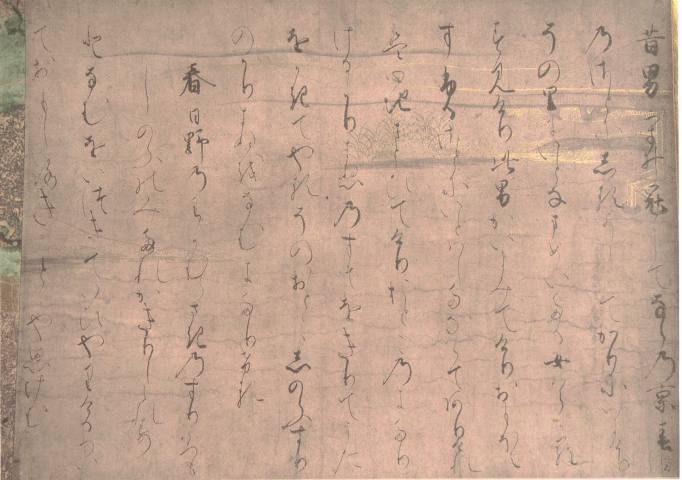 昔男うゐ冠してならの京春日
のさとにしるよしゝてかりにいにけり
その里にいとなまめいたる女はらから
すみけり此男かいまみてけりおもほえ
すふるさとにいとはしたなくてありけれ
は心地まとひてけりおとこのきたり
けるかりきぬのすそをきりてうた
をかきてやるそのおとこしのふすり
のかりきぬをなむきたりける
春日野のわかむらさきのすり衣
しのふのみたれかきりしられす
となむをいつきていひやりけるつい
ておもしろきことゝや思けむ